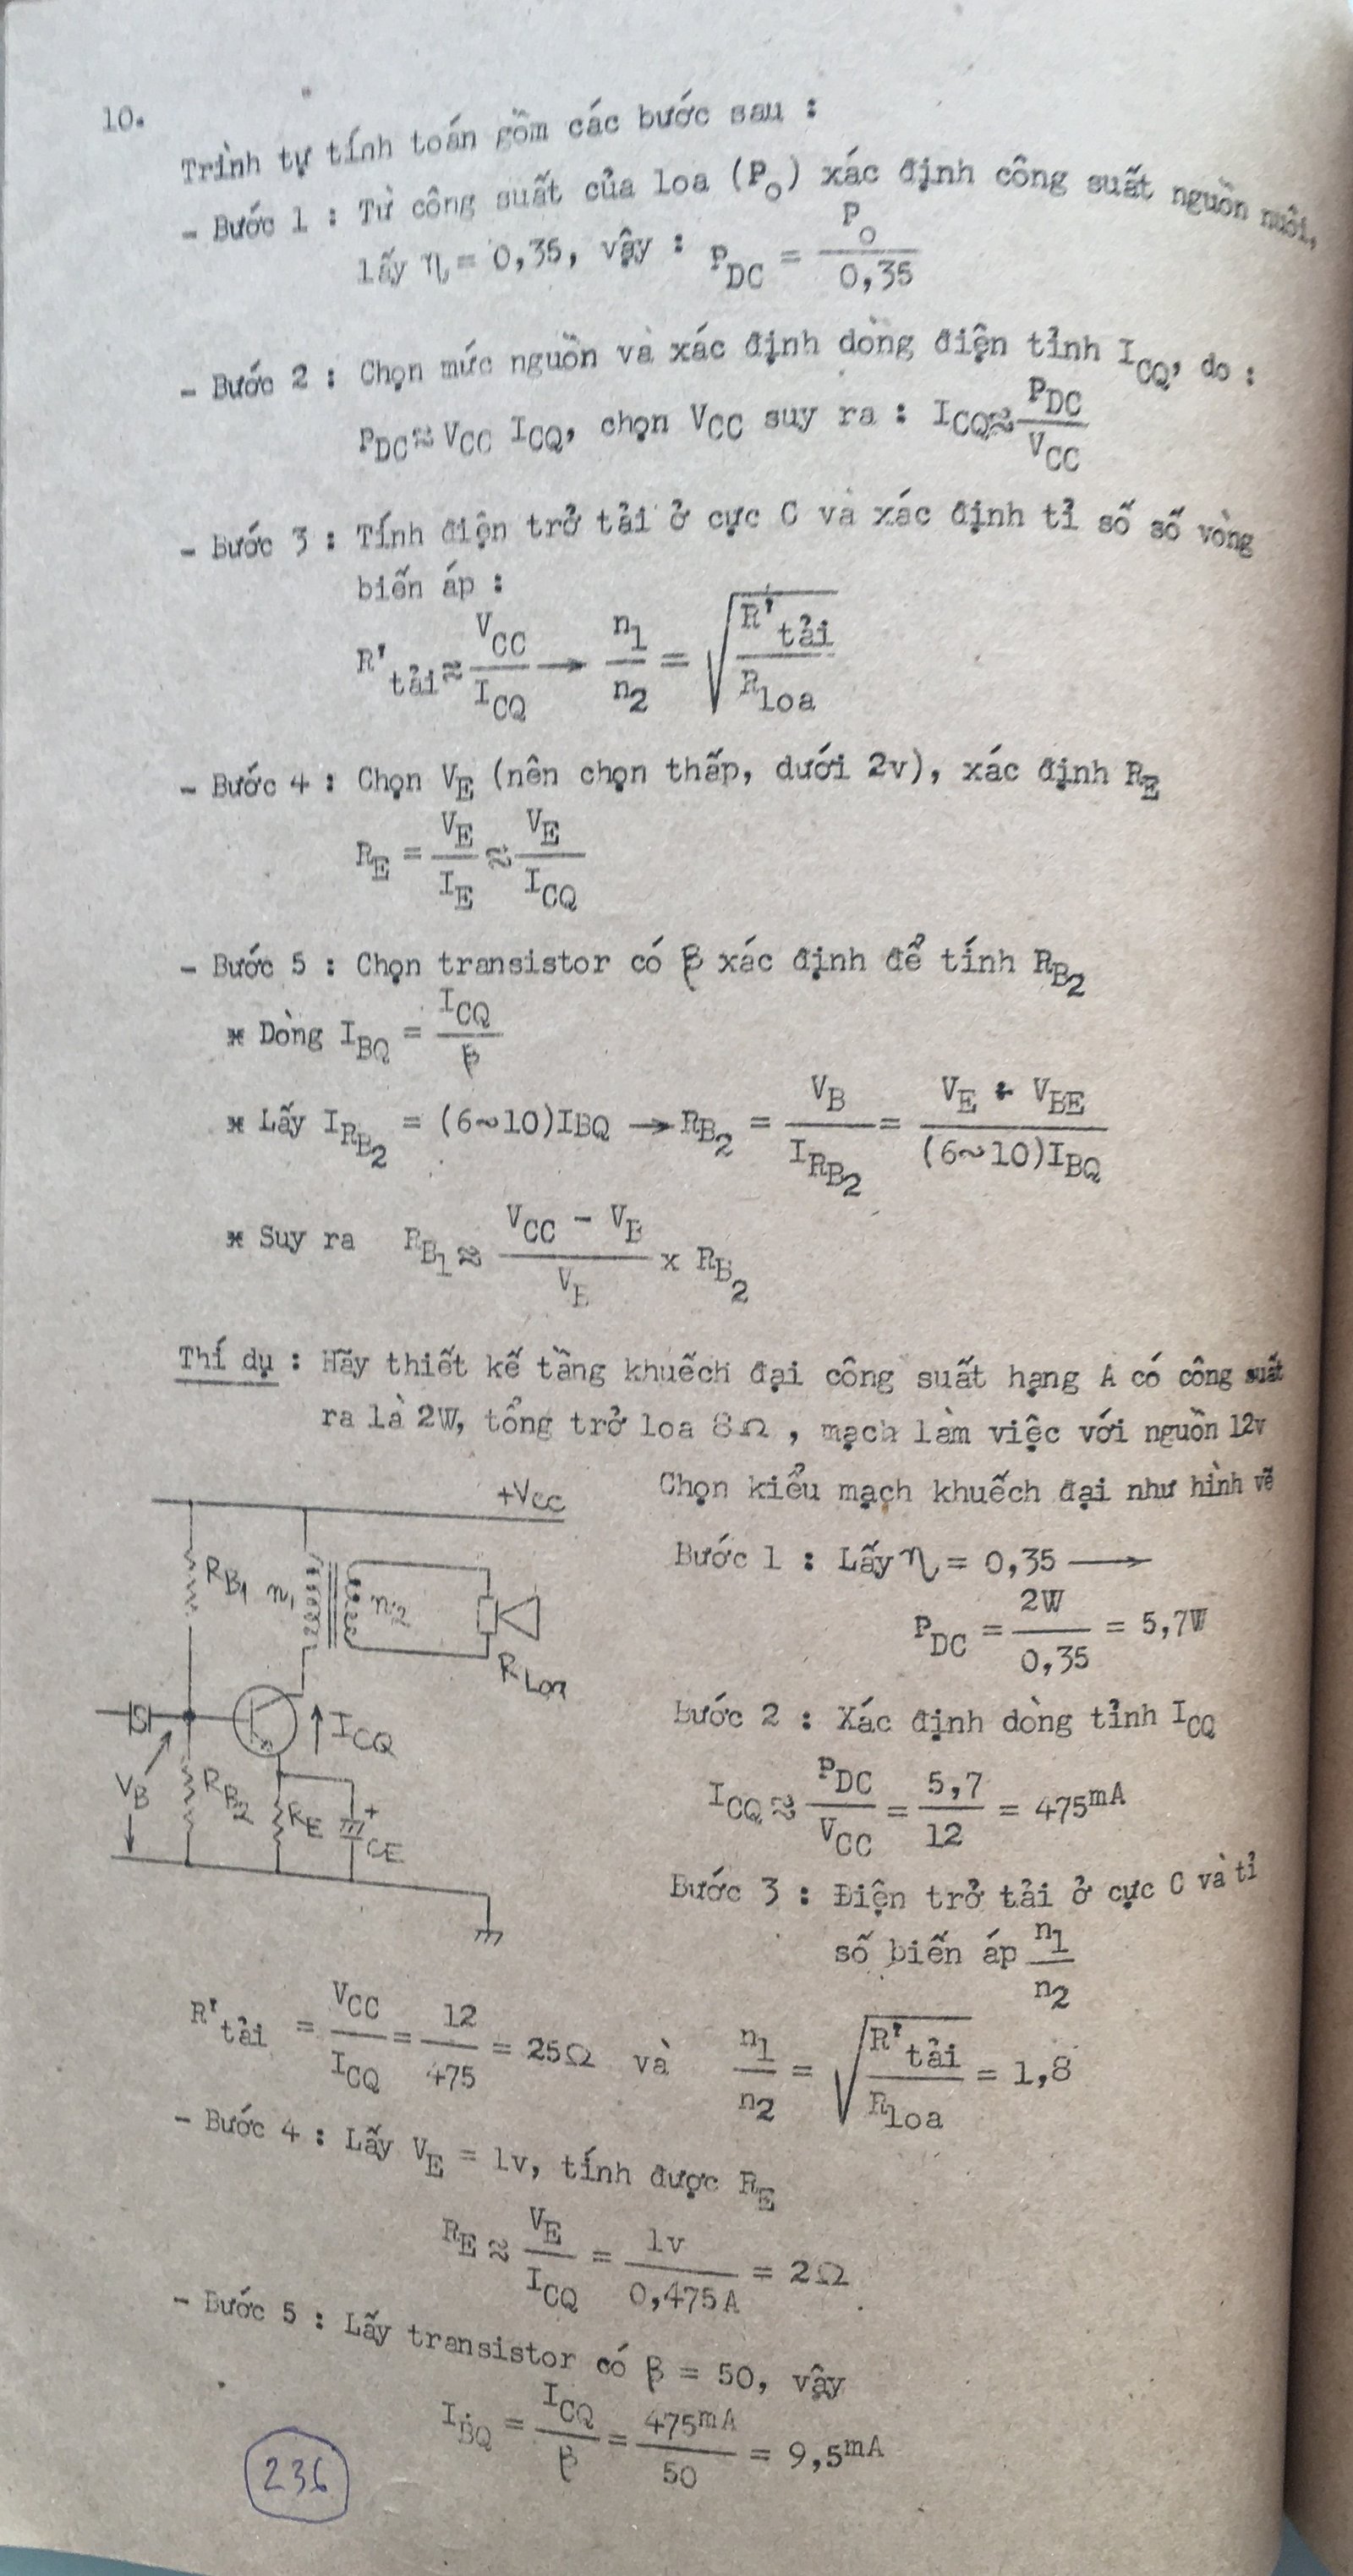 10.
Trình tự tính toán gồm các bước sau :
- Bước 1 : Từ công suất của loa (P_O) xác định công suất nguồn nuôi,
lấy η = 0,35, vậy : P_DC = P_O / 0,35
- Bước 2 : Chọn mức nguồn và xác định dòng điện tỉnh I_CQ, do :
P_DC ≈ V_CC I_CQ, chọn V_CC suy ra : I_CQ ≈ P_DC / V_CC
- Bước 3 : Tính điện trở tải ở cực C và xác định tỉ số số vòng
biến áp :
R'_tải ≈ V_CC / I_CQ → n_1 / n_2 = √(R'_tải / R_loa)
- Bước 4 : Chọn V_E (nên chọn thấp, dưới 2v), xác định R_E
R_E = V_E / I_E ≈ V_E / I_CQ
- Bước 5 : Chọn transistor có β xác định để tính R_B2
* Dòng I_BQ = I_CQ / β
* Lấy I_RB2 = (6~10)I_BQ → R_B2 = V_B / I_RB2 = (V_E + V_BE) / (6~10)I_BQ
* Suy ra R_B1 ≈ (V_CC - V_B) / V_B x R_B2
Thí dụ : Hãy thiết kế tầng khuếch đại công suất hạng A có công suất
ra là 2W, tổng trở loa 8Ω , mạch làm việc với nguồn 12v
Chọn kiểu mạch khuếch đại như hình vẽ
+V_CC
R_B1 n_1 n_2
R_Loa
I_CQ
V_B R_B2 R_E + C_E
Bước 1 : Lấy η = 0,35 →
P_DC = 2W / 0,35 = 5,7W
Bước 2 : Xác định dòng tỉnh I_CQ
I_CQ ≈ P_DC / V_CC = 5,7 / 12 = 475mA
Bước 3 : Điện trở tải ở cực C và tỉ
số biến áp n_1 / n_2
R'_tải = V_CC / I_CQ = 12 / 475 = 25Ω và n_1 / n_2 = √(R'_tải / R_loa) = 1,8
- Bước 4 : Lấy V_E = 1v, tính được R_E
R_E ≈ V_E / I_CQ = 1v / 0,475A = 2Ω
- Bước 5 : Lấy transistor có β = 50, vậy
I_BQ = I_CQ / β = 475mA / 50 = 9,5mA
236